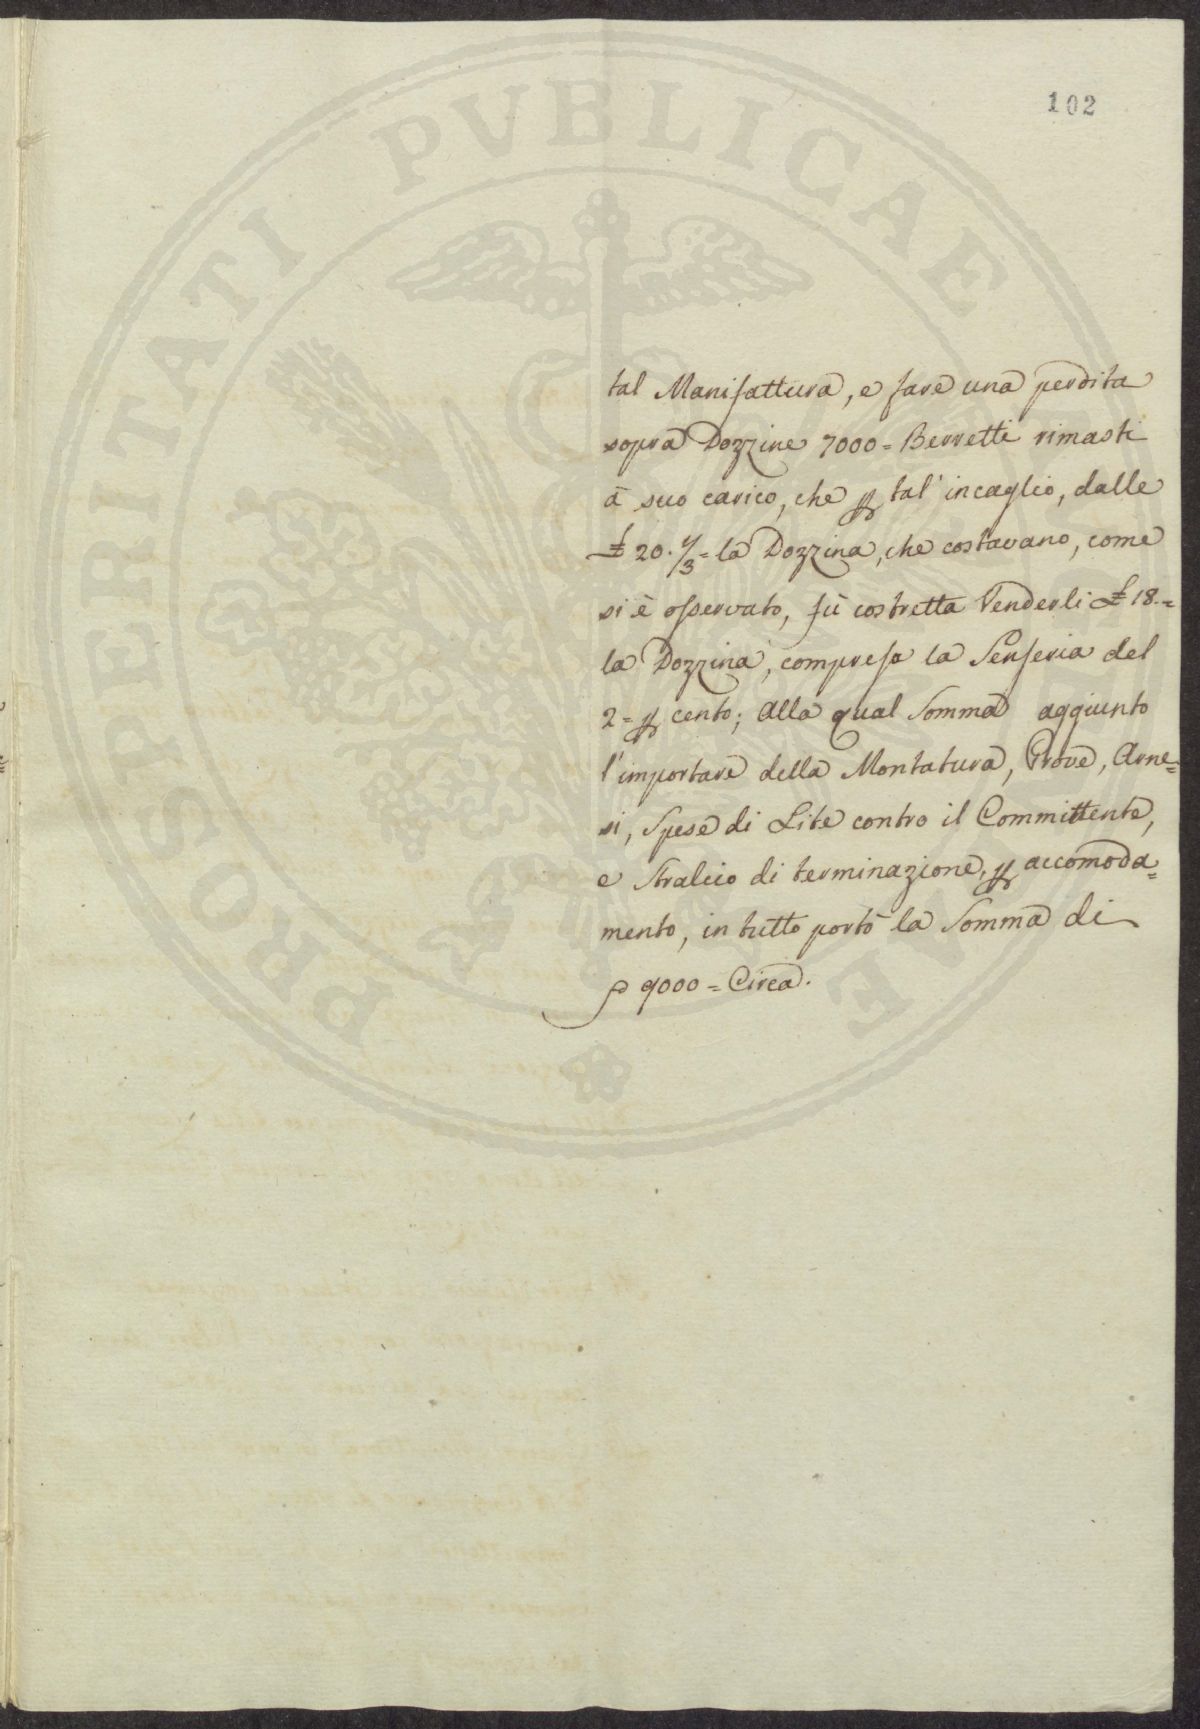 102
PROSPERITATI PVBLICAE
tal Manifattura, e fare una perdita
sopra Dozzine 7000 = Berretti rimasti
à suo carico, che ꝑ tal' incaglio, dalle
£ 20. ⅓ = la Dozzina, che costavano, come
si è osservato, fù costretta Venderli £ 18. =
la Dozzina, compresa la Senseria del
2 = ꝑ cento; Alla qual Somma aggiunto
l'importare della Montatura, Prove, Arne=
si, Spese di Lite contro il Committente,
e Stralcio di terminazione, ꝑ accomoda=
mento, in tutto portò la Somma di
9000 = Circa.